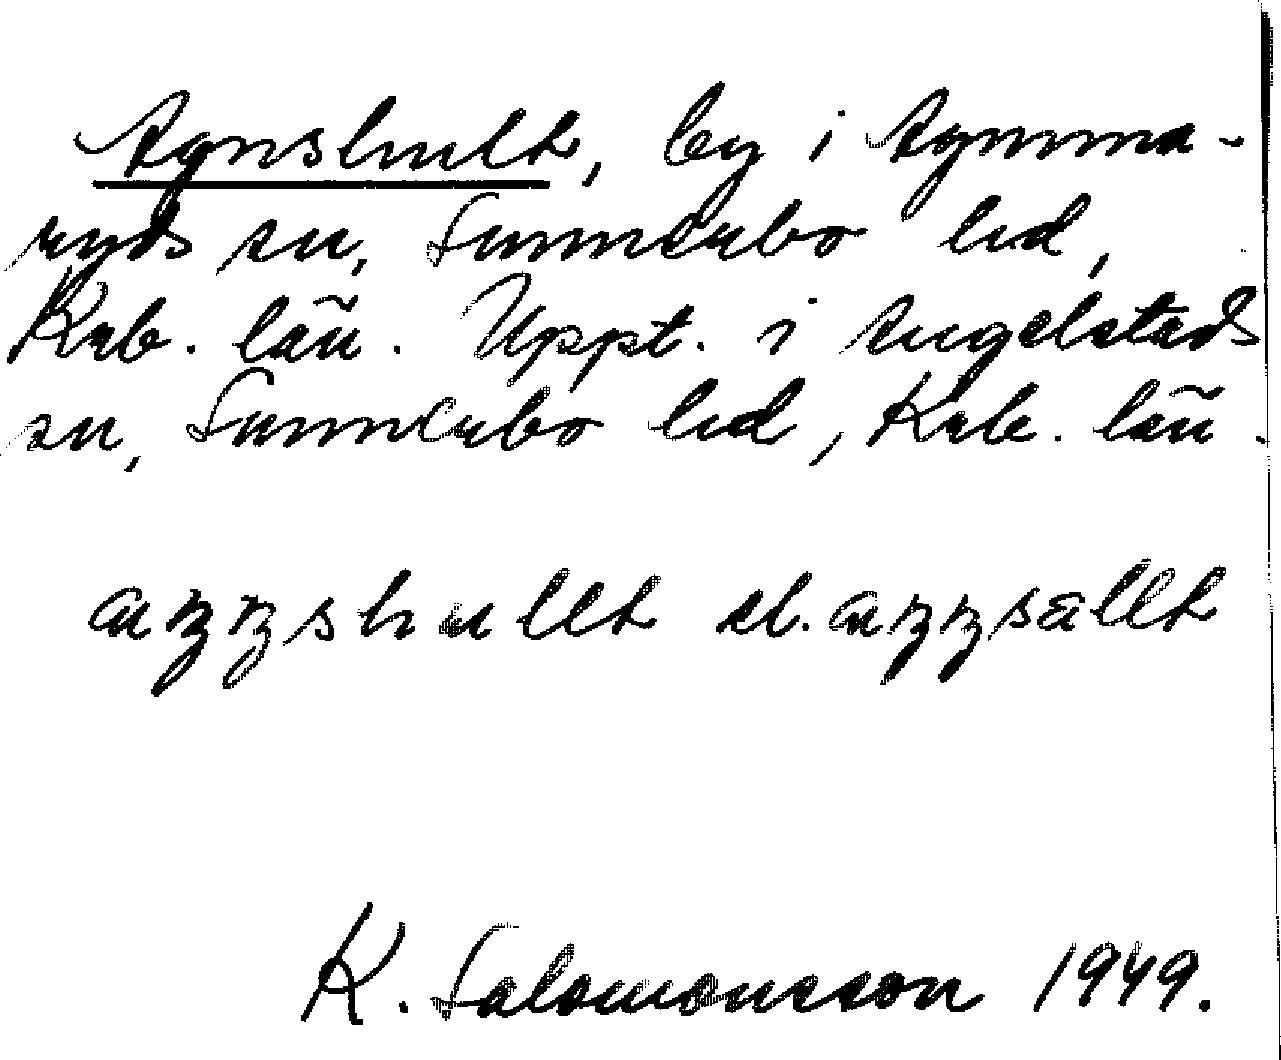 Agnshult, by i Agunna-
ryds sn, Sunnerbo hd,
Krb. län. Uppt. i Angelstads
sn, Sunnerbo hd, Krb. län.
el.
K. Salomonsson 1949.